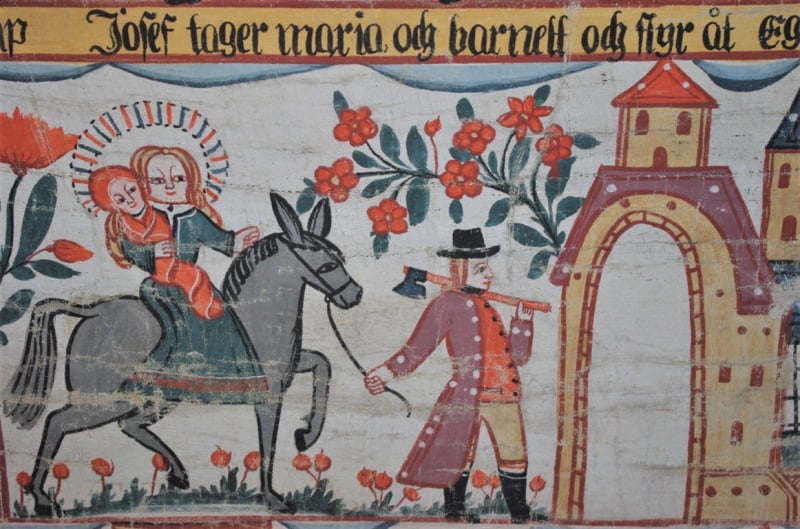 Josef tager maria och barnett och styr åt Eg